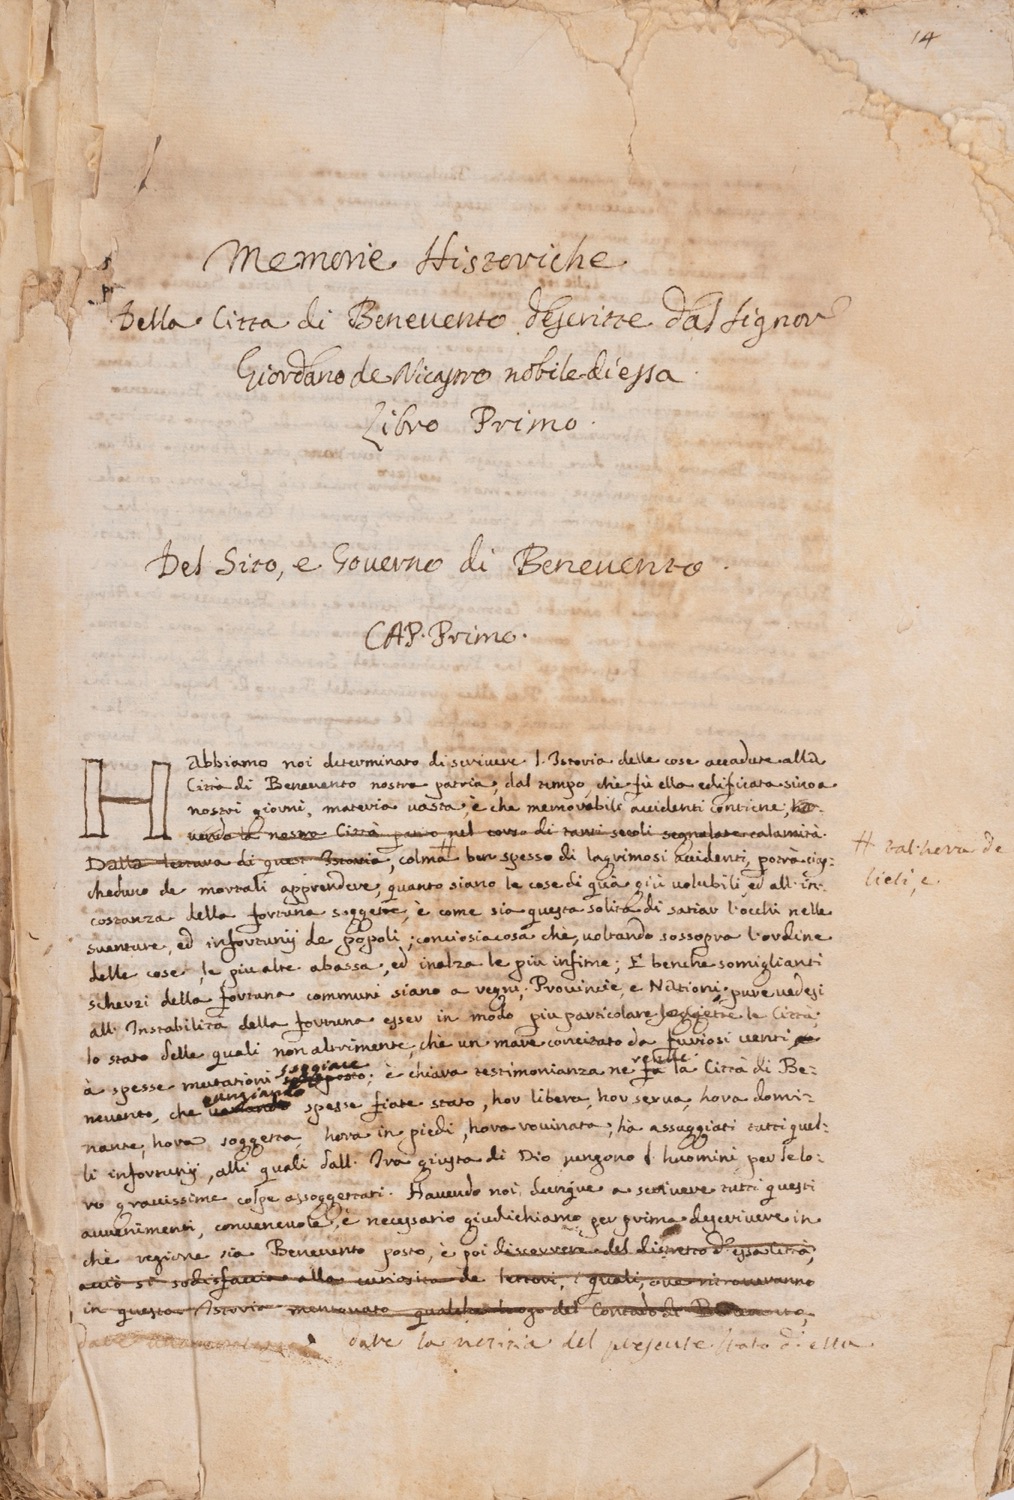 14
Memorie Historiche
Della Citta di Beneuento descritte dal Signor
Giordano de Nicastro nobile di essa
Libro Primo.
Del Sito, e Gouerno di Beneuento.
CAP. Primo.
Habbiamo noi determinato di scriuere l'Istoria delle cose accadute alla
Città di Beneuento nostra patria, dal tempo, che fù ella edificata sino a
nostri giorni, materia uasta, è che memorabili accidenti contiene, ha-
uendo la nostra Città patito nel corso di tanti secoli segnalate calamità.
Dalla lettura di quest'Istoria, colma # ben spesso di lagrimosi accidenti, potrà ciaş-
# tal'hora de
lieti, e
cheduno de mortali apprendere, quanto siano le cose di quà giù uolubili, ed all'in-
costanza della fortuna soggette, è come sia questa solita di satiar l'occhi nelle
suenture, ed infortunij de popoli; conciosiacosa chè, uoltando sossopra l'ordine
delle cose, le più alte abassa, ed inalza le più infime; E benche somiglianti
scherzi della fortuna communi siano a regni, Prouincie, e Nationi, pure uedesi
all'Instabilità della fortuna esser in modo più particolare soggette le Città;
lo stato delle quali non altrimente, che un mare concitato da furiosi uenti
à spesse mutationi soggiace; è chiara testimonianza ne rende la Città di Be-
neuento, che cangiando spesse fiate stato, hor libera, hor serua, hora domi-
nante, hora soggetta, hora in piedi, hora rouinata, ha assaggiati tutti quel-
li infortunij, alli quali dall'Ira giusta di Dio uengono l'huomini per le lo-
ro grauissime colpe assoggettati. Hauendo noi dunque a scriuere tutti questi
auuenimenti, conueneuole, è necessario giudichiamo per prima descriuere in
chè regione sia Beneuento posto, è poi discorrere del distretto d'essa Città,
acciò si sodisfaccia alla curiosità de lettori, i quali, oue ritroueranno
in questa Istoria mentouato qualche luogo del Contado di Beneuento,
dare la notizia del presente stato di essa